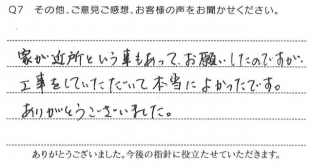 Q7 その他、ご意見ご感想、お客様の声をお聞かせください。
家が近所という事もあって、お願いしたのですが、
工事をしていただいて本当によかったです。
ありがとうございました。
ありがとうございました。今後の指針に役立たせていただきます。